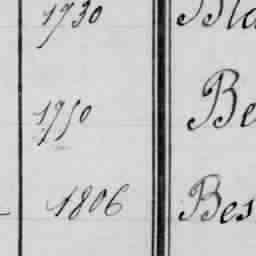 1730 Bla
1750 Be
1806 Bes